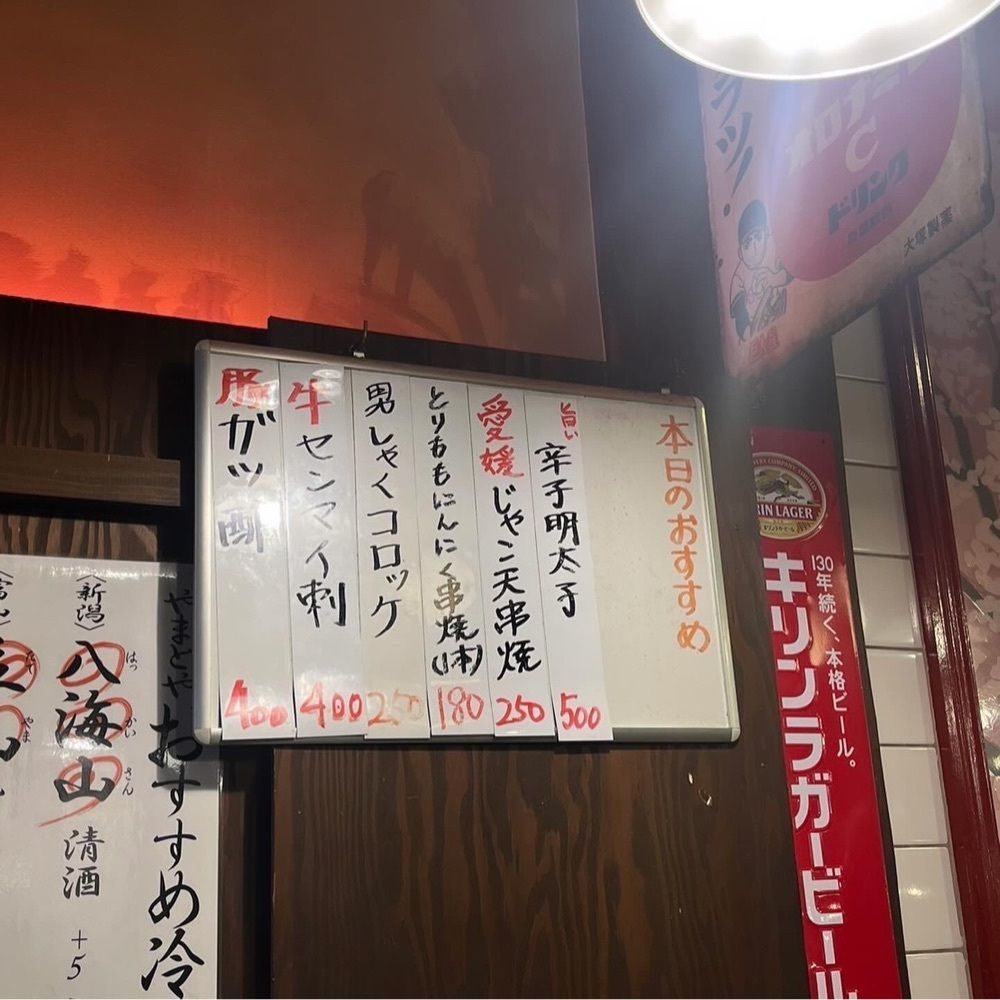 本日のおすすめ
旨い 辛子明太子 500
愛媛じゃこ天串焼 250
とりももにんにく串焼(1本) 180
男しゃくコロッケ 250
牛センマイ刺 400
豚ガツ酢 400
オロナミン
C
ドリンク
大塚製薬
KIRIN LAGER
130年続く、本格ビール。
キリンラガービール
やまとや おすすめ冷
〈新潟〉八海山 清酒 +5
はっかいさん